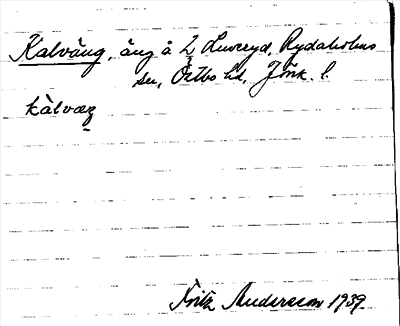 Kalväng, äng å L Luveryd, Rydaholms
sn, Östbo hd, Jönk. l.
kàlvæŋ
Fritz Andersson 1939